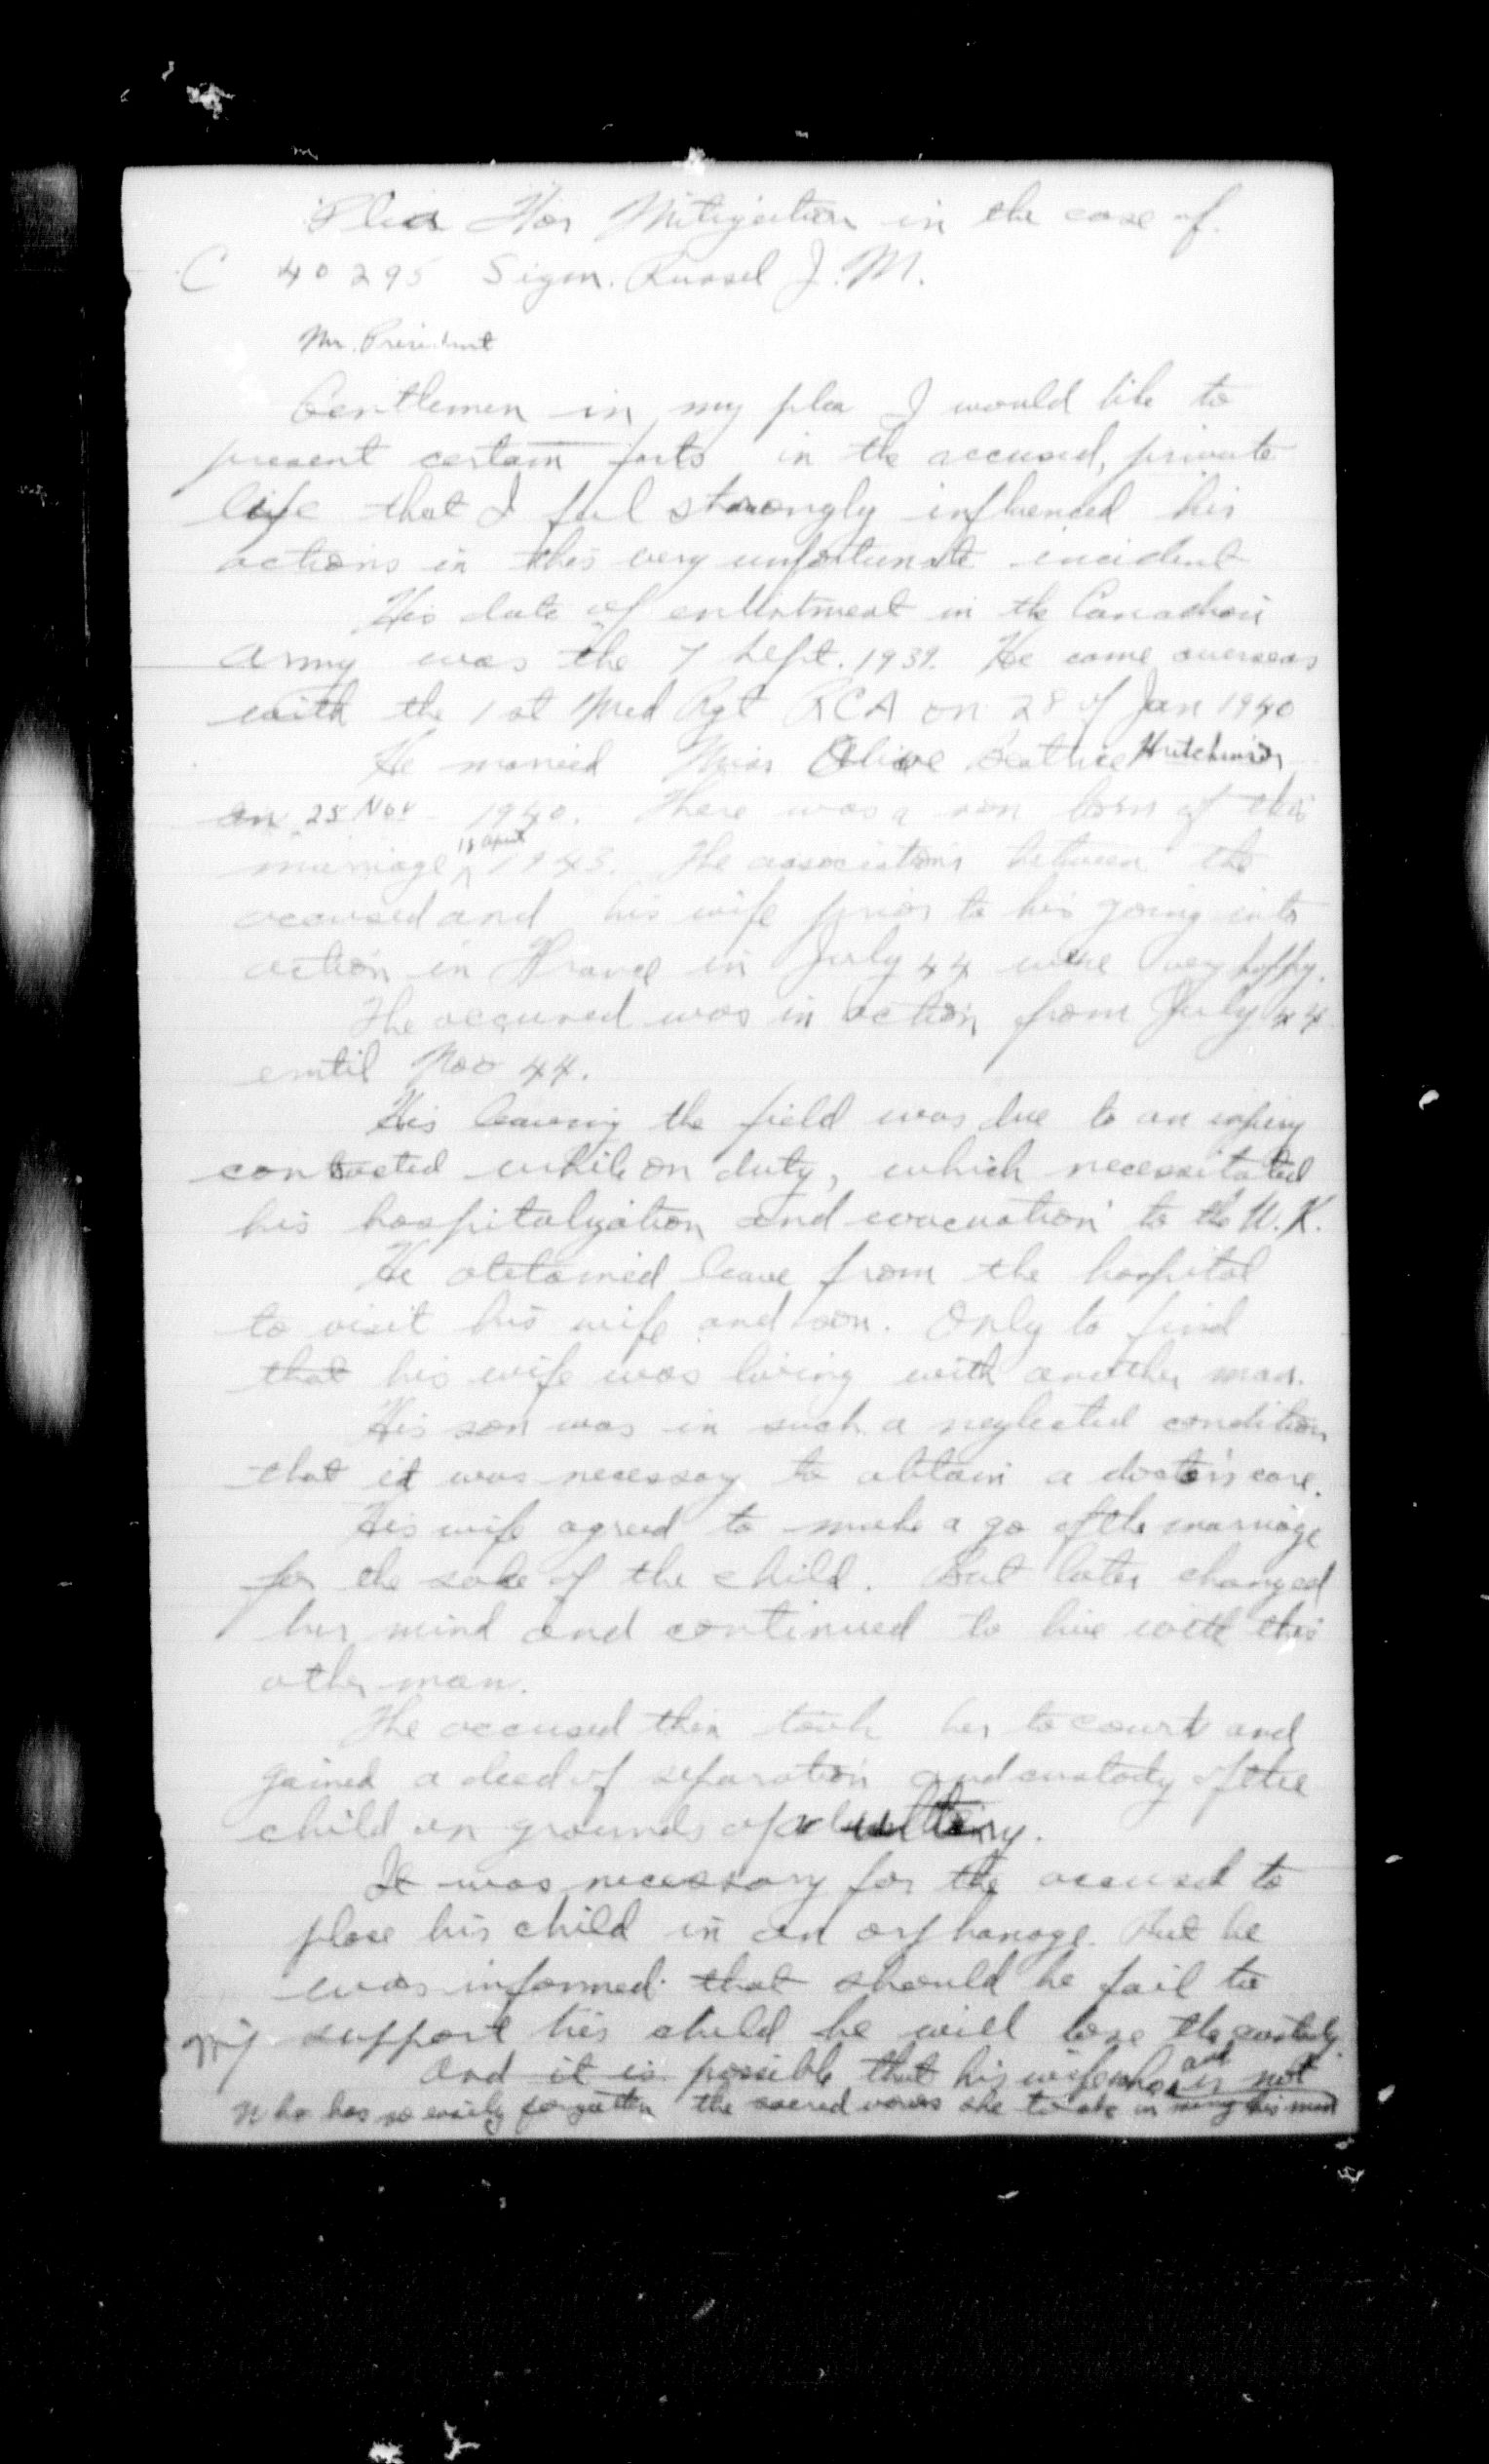 Plea For Mitigation in the case of
C 40295 Sigm. Russel J. M.
Mr. President
Gentlemen in my plea I would like to
present certain facts in the accused, private
life that I feel strongly influenced his
actions in this very unfortunate incident
His date of enlistment in the Canadian
army was the 7 Sept. 1939. He came overseas
with the 1st Med Rgt RCA on 28 of Jan 1940
He married Miss Olive Beatrice Hutchinson
on 25 Nov 1940. There was a son born of this
marriage 18 April 1943. The associations between the
accused and his wife prior to his going into
action in France in July 44 were very happy.
The accused was in action from July 44
until Nov 44.
His leaving the field was due to an injury
contracted while on duty, which necessitated
his hospitalization and evacuation to the U.K.
He obtained leave from the hospital
to visit his wife and son. Only to find
that his wife was living with another man.
His son was in such a neglected condition
that it was necessary to obtain a doctor's care.
His wife agreed to make a go of the marriage
for the sake of the child. But later changed
her mind and continued to live with this
other man.
The accused then took her to court and
gained a deed of separation and custody of the
child on grounds of adultery.
It was necessary for the accused to
place his child in an orphanage. But he
was informed that should he fail to
support his child he will lose the custody.
And it is possible that his wife who and is not
who has so easily forgotten the sacred vows she took in